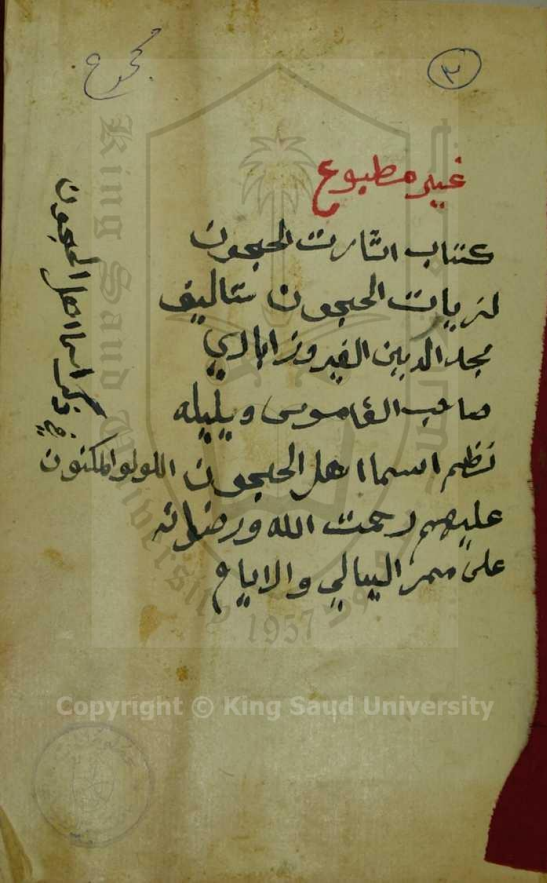 مجموع
٣
غير مطبوع
كتاب اثارت الحجون
لزيارت الحجون تاليف
مجد الدين الفيروز ابادي
صاحب القاموس ويليله
نظم اسما اهل الحجون اللولو المكنون
عليهم رحمت الله ورضوانه
على ممر الليالي والايام
في ذكر اسما اهل الحجون
King Saud University
1957
Copyright © King Saud University